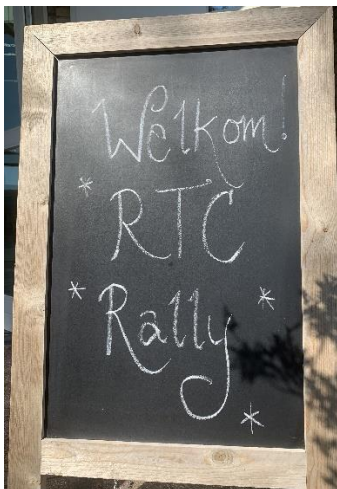 Welkom!
RTC
Rally